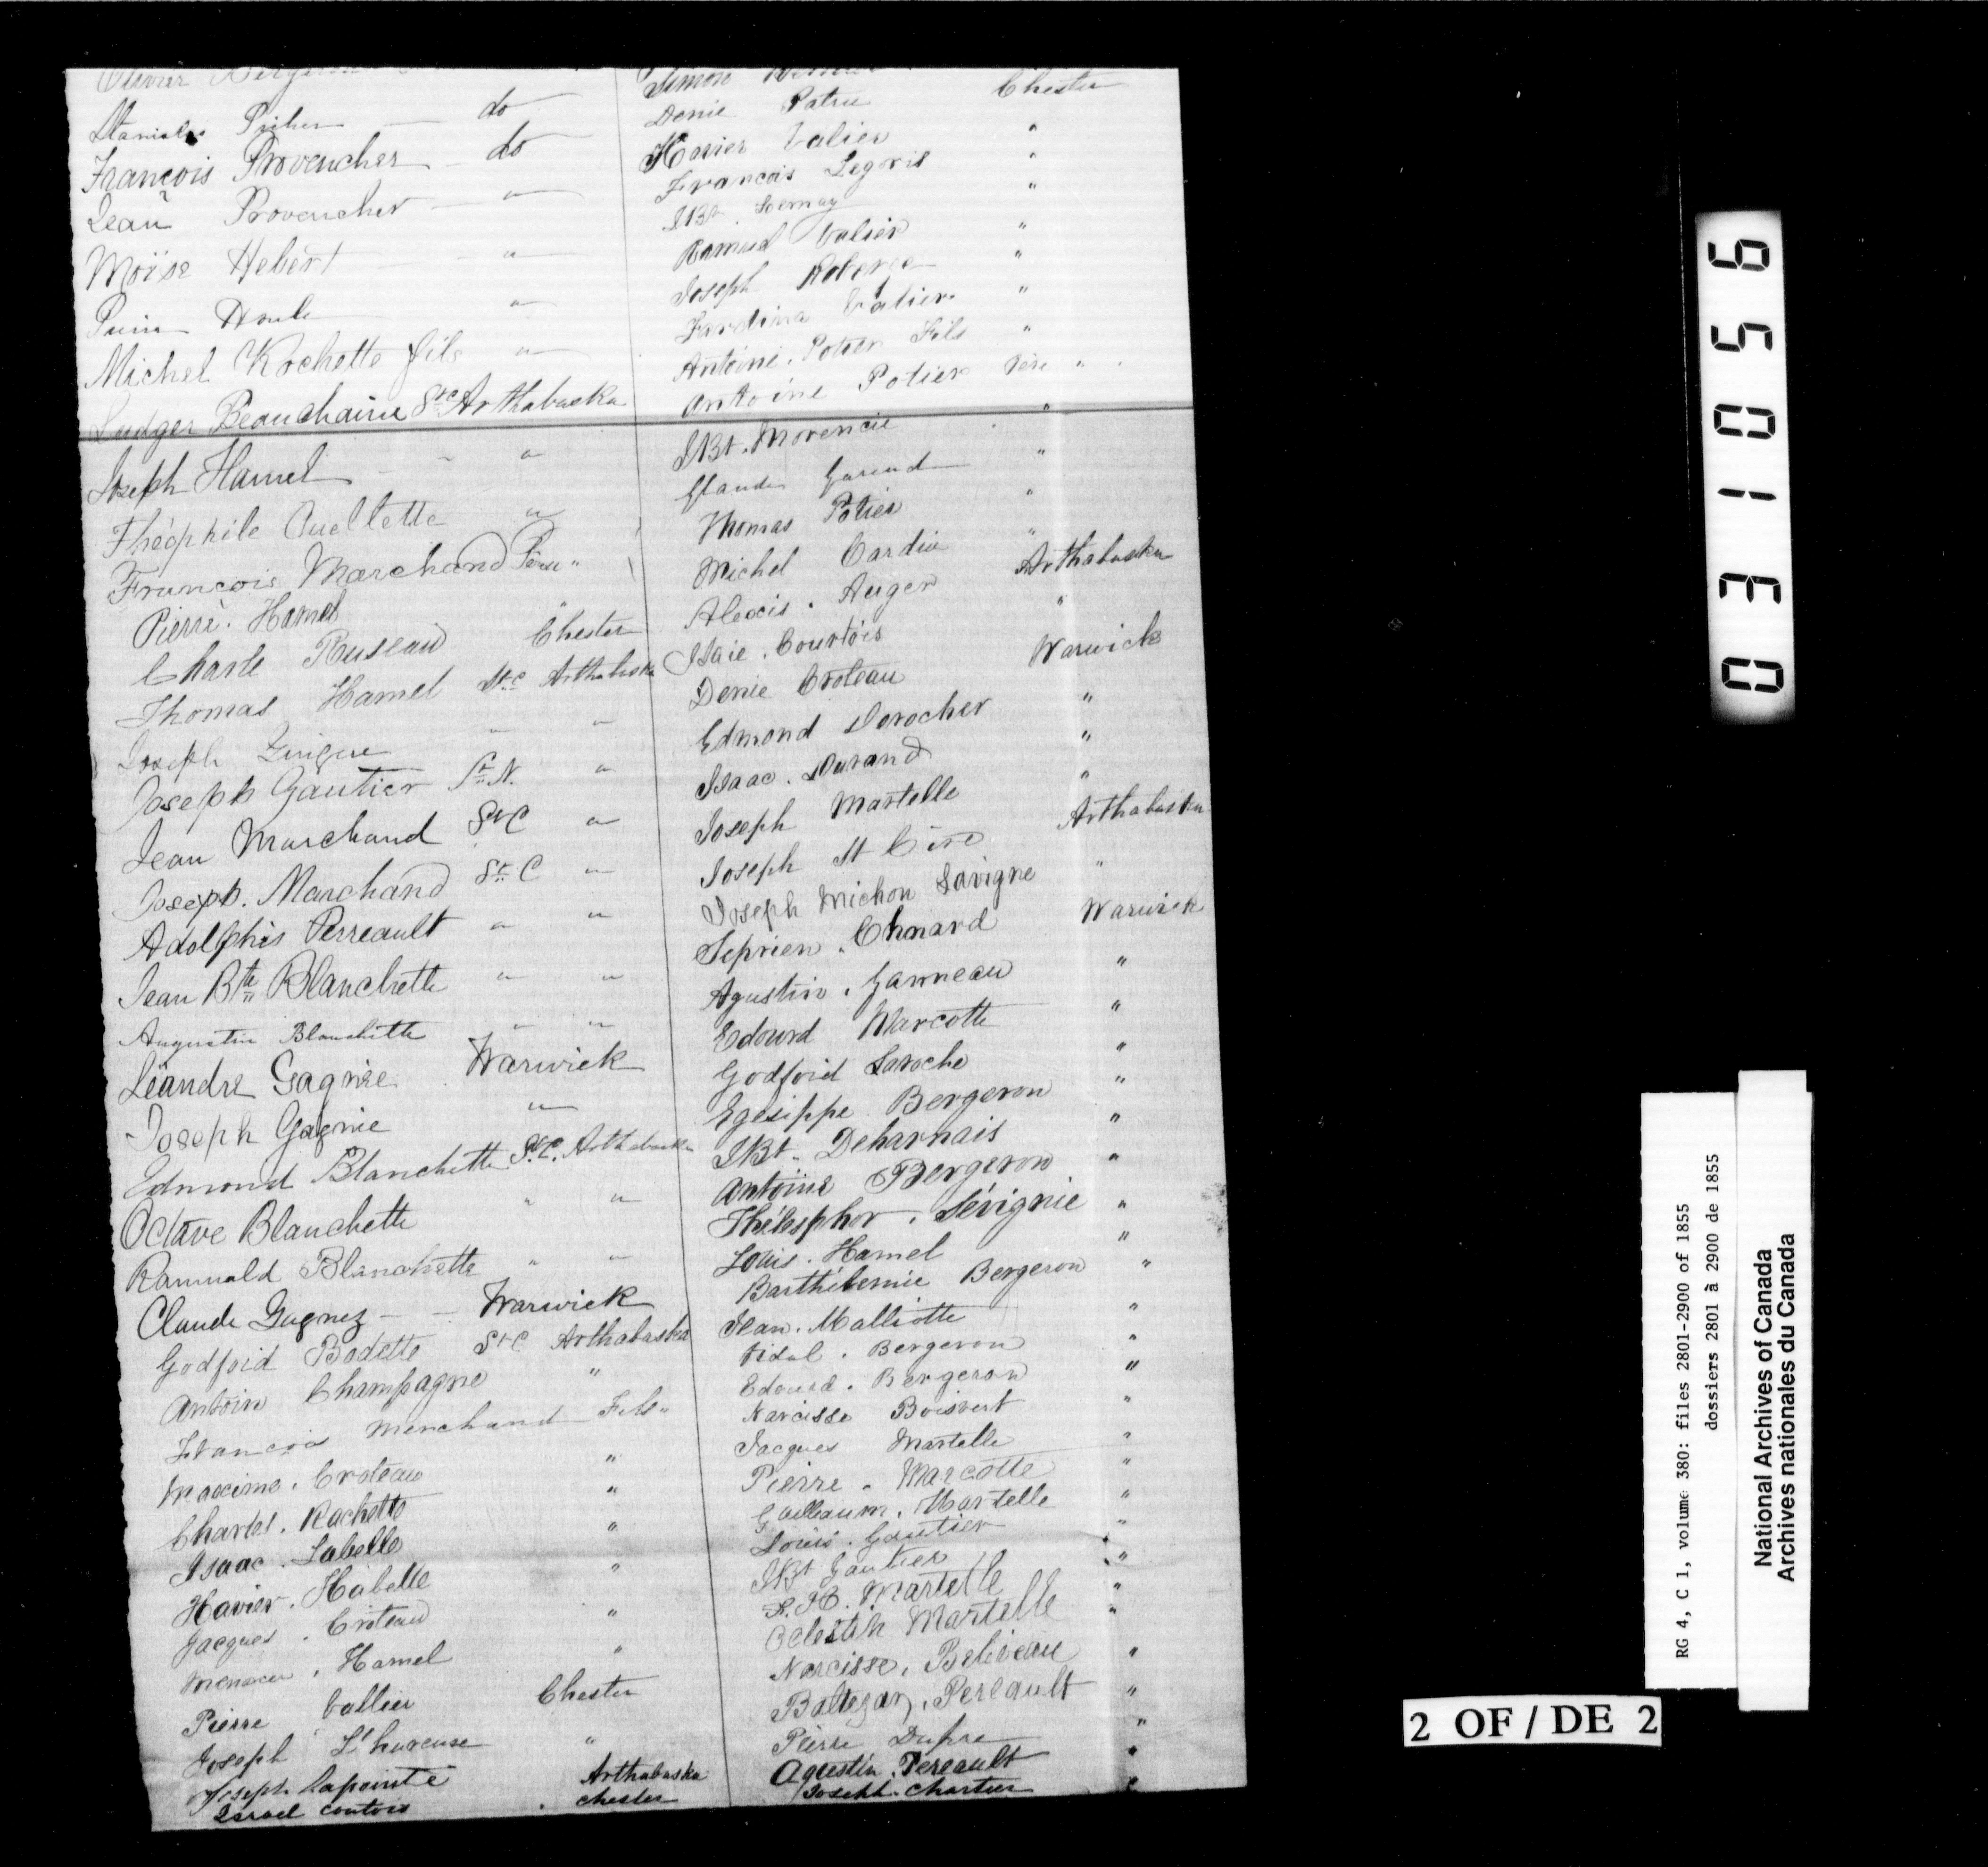 Olivier Bergeron
Stanislas Pricher — do
François Provencher — do
Jean Provencher — "
Moïse Hebert — "
Houle "
Michel Rochette fils "
Ludger Beauchaine St C Arthabaska
Joseph Hamel "
Théophile Ouellette "
Francois Marchand Père "
Pierre. Hamel "
Charle Ruseau Chester
Thomas Hamel St C Arthabaska
Joseph " "
Joseph Gautier St N. "
Jean Marchand St C "
Joseph. Marchand St C "
Adolphis Perreault " "
Jean Bte Blanchette " "
Augustin Blanchette " "
Léandre Gagnie Warwick
Joseph Gagnie "
Edmond Blanchette St C. Arthabaska
Octave Blanchette " "
Ramuald Blanchette " "
Claude Gagnez — Warwick
Godfoid Bodette St C Arthabaska
Antoin Champagne "
Francois Merchand Fils "
Maxime. Croteau "
Charles. Rochette "
Isaac. Labelle "
Havier. Habelle "
Jacques. Croteau "
Hamel "
Pierre Vallier Chester
Joseph L'hureuse "
Joseph Lapointe Arthabaska
Israel contois chester
Simon
Denie Patrie Chester
Havier Valier "
Francois Legris "
JBt Lemay "
Ramuel Valier "
Joseph Roberge "
Fardina Valier "
Antoine. Potier Fils "
Antoine Potier Père "
JBt. Morencie "
Glaude "
Thomas Potier "
Michel Cardin "
Alexis. Auger Arthabaska
Isaie. Courtois "
Denie Croteau Warwick
Edmond Derocher "
Isaac. Durand "
Joseph Martelle "
Joseph St Cire Arthabaska
Joseph Michon Lavigne "
Seprien. Chnard Warwick
Agustin. Ganneau "
Edourd Marcotte "
Godfoid Laroche "
Egesippe Bergeron "
JBt. Deharnais "
Antoine Bergeron "
Thélesphor. Sévignie "
Louis. Hamel "
Barthélemie Bergeron "
Jean. Malliotte "
Vidal. Bergeron "
Edourd. Bergeron "
Narcisse Boisvert "
Jacques Martelle "
Pierre. Marcotte "
Guilleaum. Martelle "
Louis. Gautier "
JBt Gautier "
Martelle "
Celestin Martelle "
Narcisse. Beliveau "
Baltezar. Pereault "
Pierre Dupre "
Agustin. Pereault "
Joseph. Chartier "
0301505 6
RG 4, C 1, volume 380: files 2801-2900 of 1855
dossiers 2801 à 2900 de 1855
National Archives of Canada
Archives nationales du Canada
2 OF/DE 2